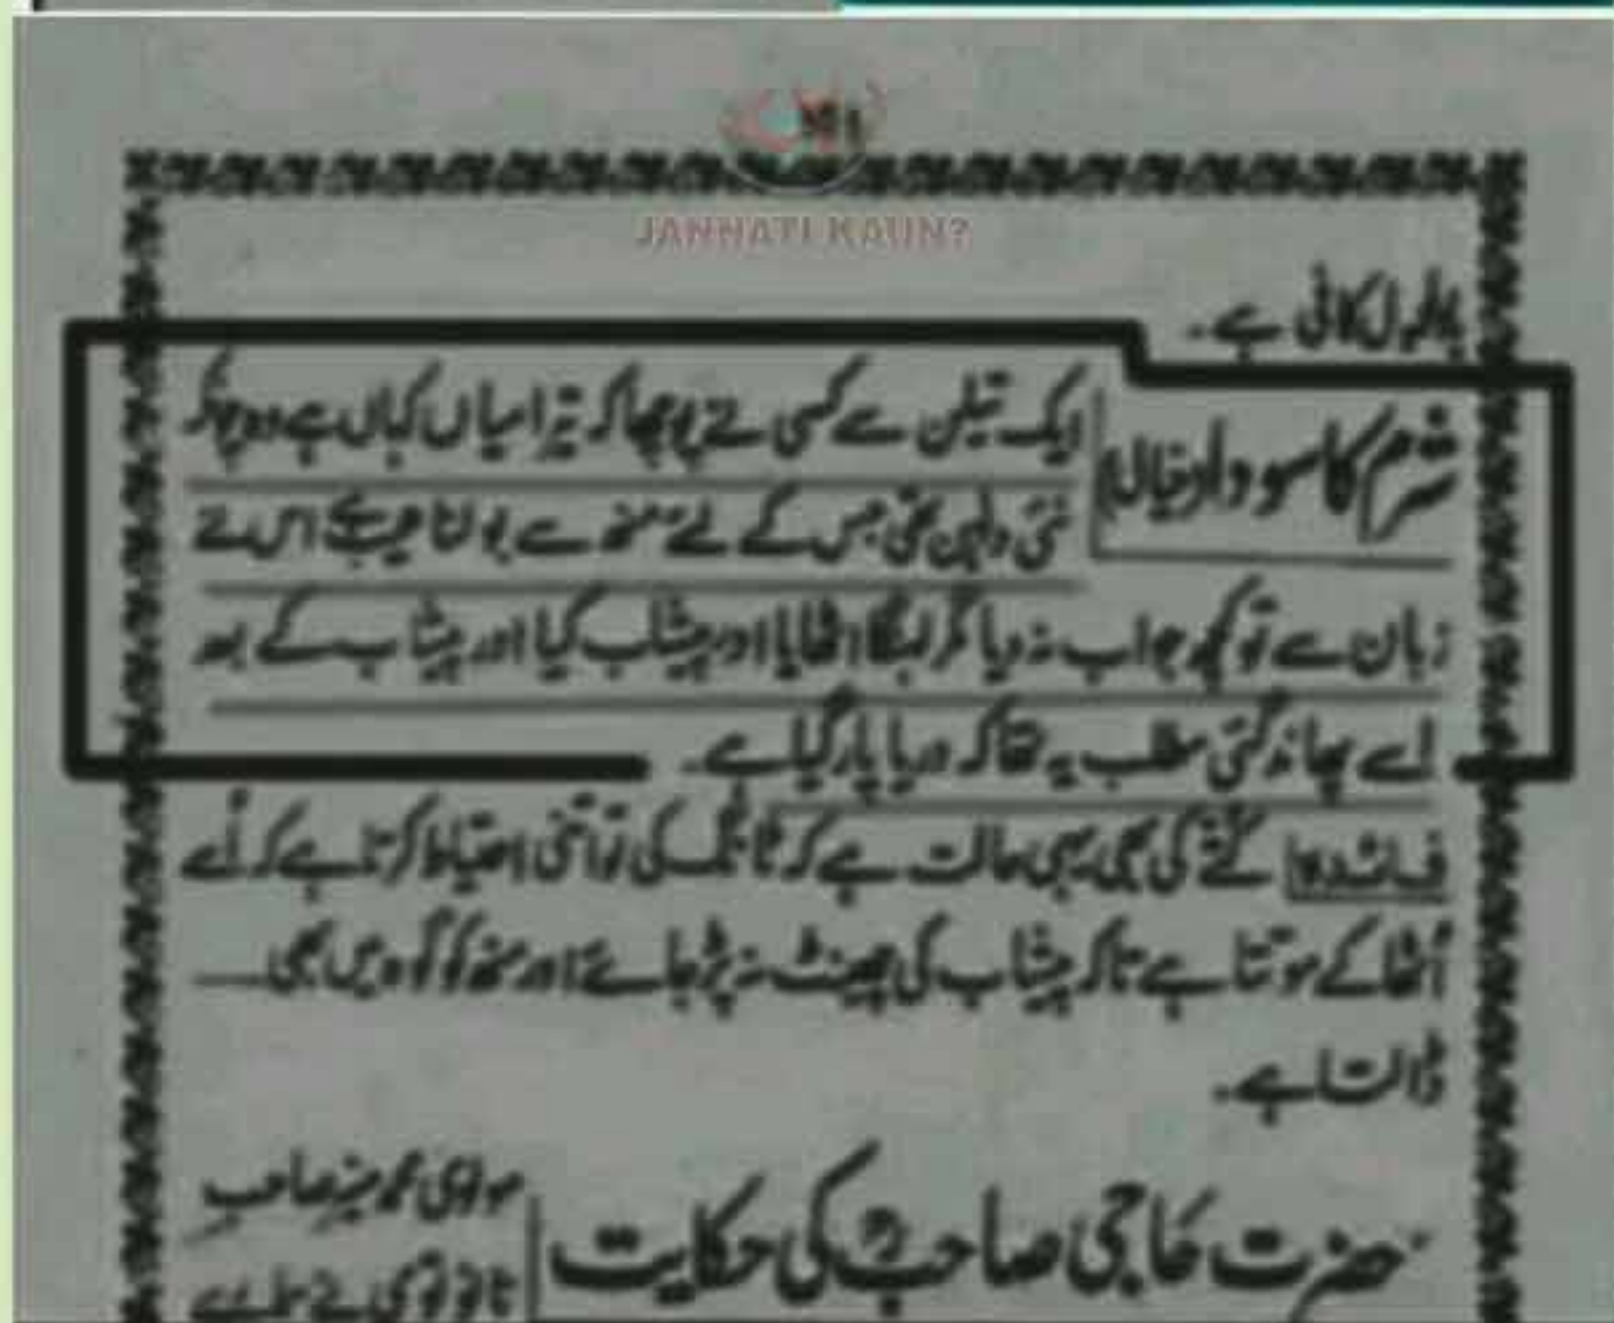 JANNATI KAUN?
کافی ہے۔
شرم کا سودا (خیال)
ایک تیلن سے کسی نے پوچھا کہ تیرا میاں کہاں ہے وہ چونکہ
نئی دلہن تھی جس کے لئے منھ سے بولنا عیب ہے اس نے
زبان سے تو کچھ جواب نہ دیا مگر لہنگا اٹھایا اور پیشاب کیا اور پیشاب کے بعد
اسے پھاند گئی مطلب یہ تھا کہ دریا پار گیا ہے۔
فائدہ: کتے کی بھی یہی حالت ہے کہ ٹانگ کی تو اتنی احتیاط کرتا ہے کہ اُسے
اُٹھا کے موتتا ہے تاکہ پیشاب کی چھینٹ نہ پڑ جائے اور منھ کو گوہ میں بھی
ڈالتا ہے۔
حضرت حاجی صاحبؒ کی حکایت
مولوی محمد منیر صاحب
نانوتوی نے ہمارے